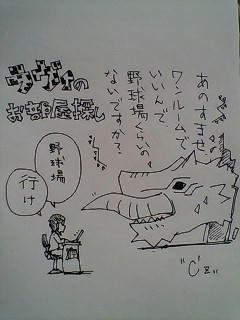 ラヴィの
お部屋探し
あのすません
ワンルームで
いいんで
野球場くらいの
ないですか?
野球場
行け